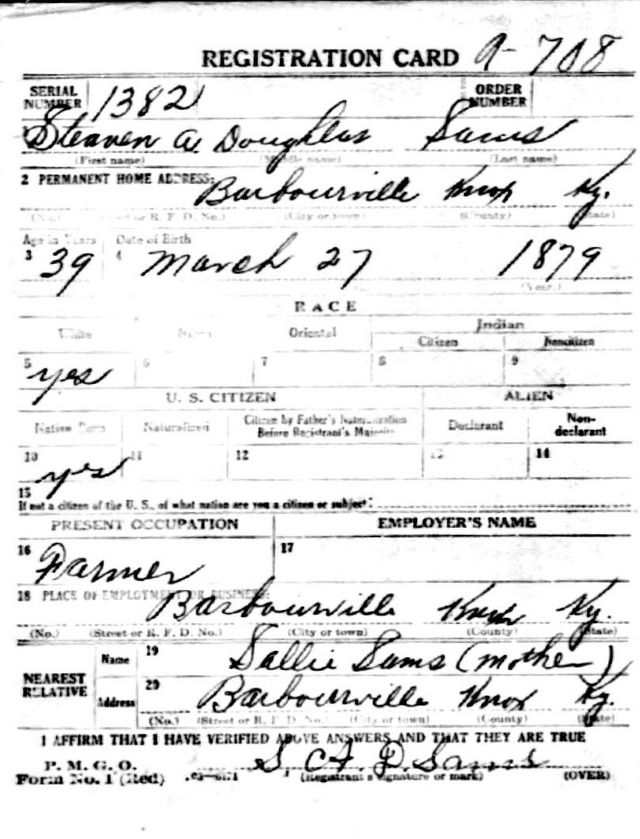 REGISTRATION CARD 9-708
SERIAL NUMBER 1382 ORDER NUMBER
Steaven A Doughlas Sams
(First name) (Middle name) (Last name)
2 PERMANENT HOME ADDRESS:
Barbourville Knox Ky.
(No.) (Street or R. F. D. No.) (City or town) (County) (State)
Age in Years Date of Birth
3 39 4 March 27 1879
(Year.)
RACE
White Negro Oriental Indian
Citizen Noncitizen
5 yes 6 7 8 9
U. S. CITIZEN ALIEN
Native Born Naturalized Citizen by Father's Naturalization Before Registrant's Majority Declarant Non-declarant
10 yes 11 12 13 14
15
If not a citizen of the U. S., of what nation are you a citizen or subject?
PRESENT OCCUPATION EMPLOYER'S NAME
16 Farmer 17
18 PLACE OF EMPLOYMENT OR BUSINESS:
Barbourville Knox Ky.
(No.) (Street or R. F. D. No.) (City or town) (County) (State)
NEAREST RELATIVE Name 19 Sallie Sams (mother)
Address 20 Barbourville Knox Ky.
(No.) (Street or R. F. D. No.) (City or town) (County) (State)
I AFFIRM THAT I HAVE VERIFIED ABOVE ANSWERS AND THAT THEY ARE TRUE
P. M. G. O.
Form No. 1 (Red) S, A D Sams
(Registrant's signature or mark) (OVER)